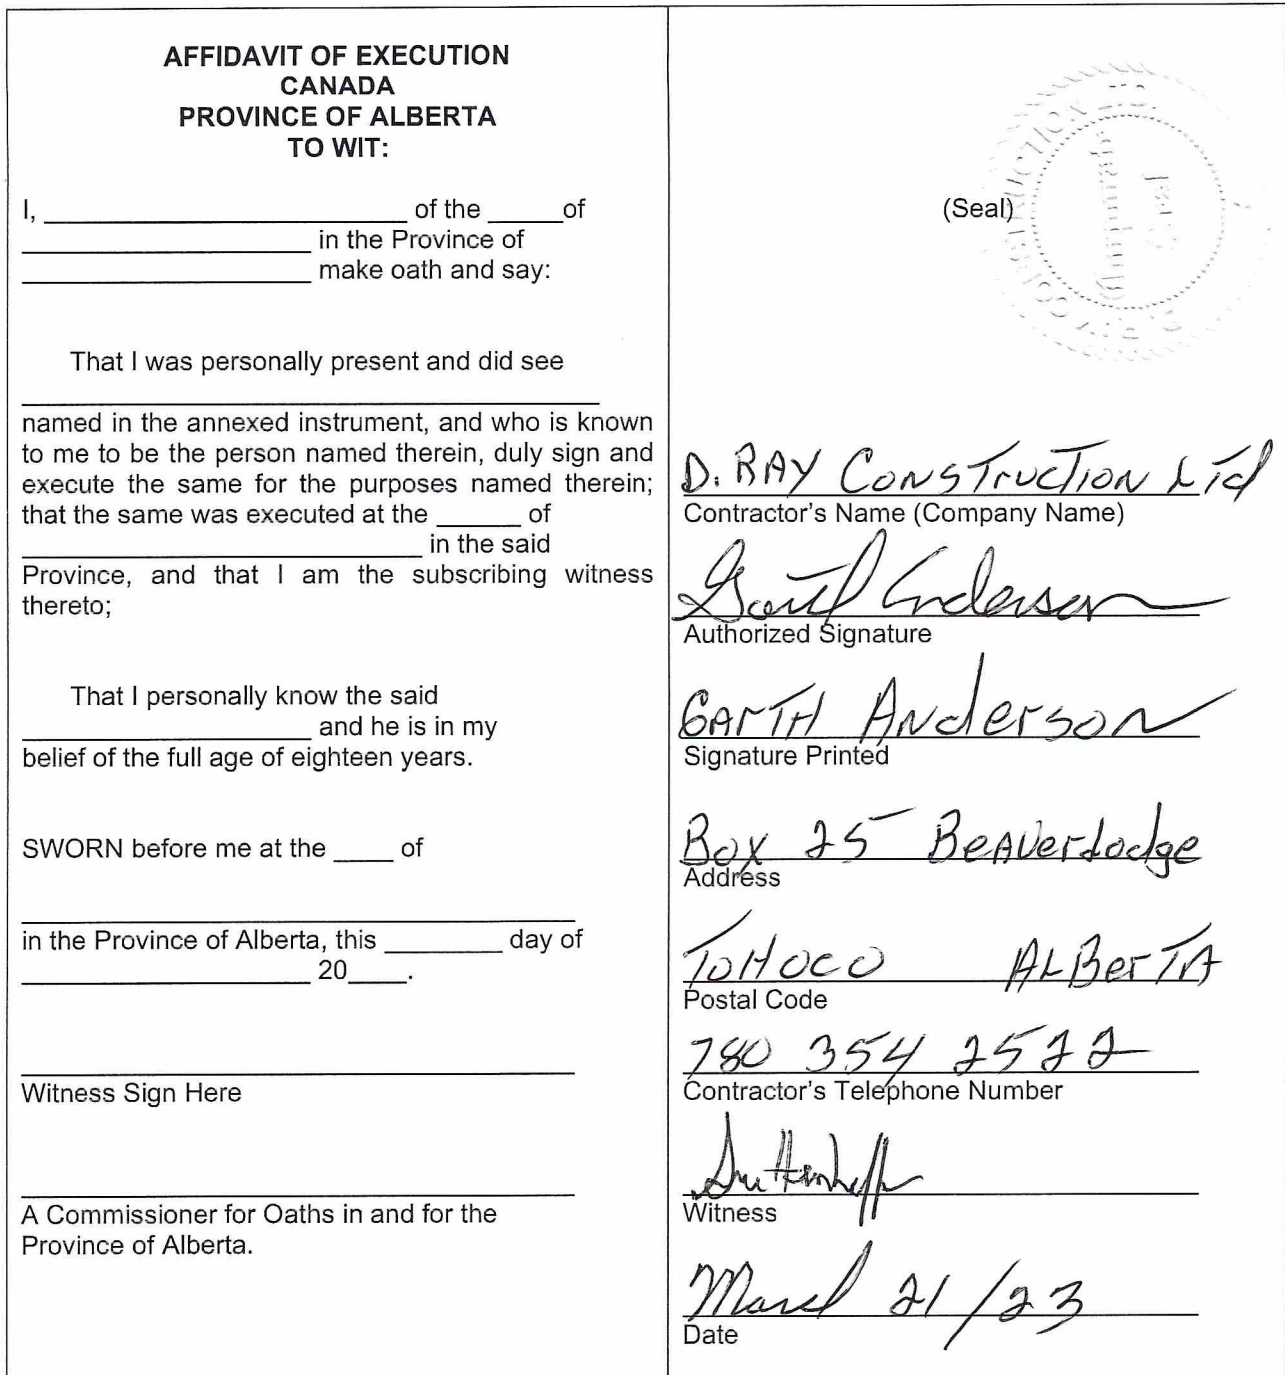 AFFIDAVIT OF EXECUTION
CANADA
PROVINCE OF ALBERTA
TO WIT:
I, ____________ of the _____of
____________ in the Province of
____________ make oath and say:
That I was personally present and did see
____________
named in the annexed instrument, and who is known
to me to be the person named therein, duly sign and
execute the same for the purposes named therein;
that the same was executed at the ______ of
____________ in the said
Province, and that I am the subscribing witness
thereto;
That I personally know the said
____________ and he is in my
belief of the full age of eighteen years.
SWORN before me at the ____ of
____________
in the Province of Alberta, this ________ day of
____________ 20____.
____________
Witness Sign Here
____________
A Commissioner for Oaths in and for the
Province of Alberta.
(Seal)
D. RAY CONSTRUCTION LTD.
D. RAY CONSTruCTION LTd
Contractor's Name (Company Name)
Garth Anderson
Authorized Signature
GArTH ANderson
Signature Printed
Box 25 BeAVerLodge
Address
TOH0C0 ALBerTA
Postal Code
780 354 2522
Contractor's Telephone Number
Witness
March 21/23
Date